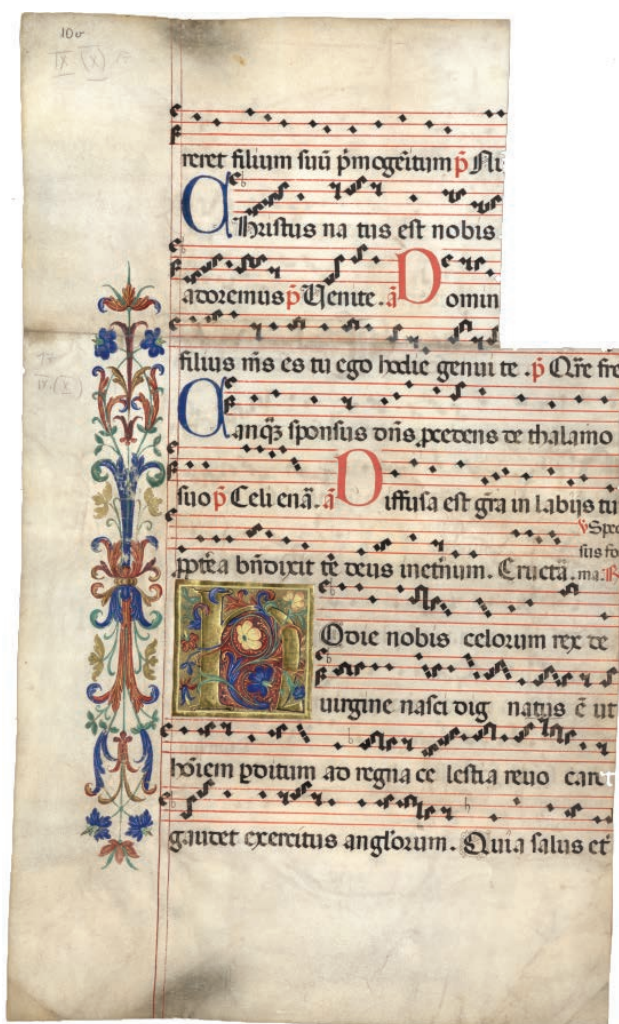 10v
IX (X)
reret filium suū p̄mogeitum p̄ Ni
Christus na tus est nobis
adoremus p̄ Venite . a̅ Domin
filius m̅s es tu ego hodie genui te . p̄ Qr̄e fre
IX. (X)
Tanqʒ sponsus dn̄s ꝓcedens de thalamo
suo p̄ Celi enā. a̅ Diffusa est gr̄a in labijs tu
℣ Spec
sus fo
ꝓpt̄ea bn̄dixit te deus inet̄num . Eructā . ma: ℟
Hodie nobis celorum rex de
uirgine nasci dig natus ē ut
ho̅iem ꝑditum ad regna ce lestia reuo caret
gaudet exercitus angl̓orum . Quia salus et̄